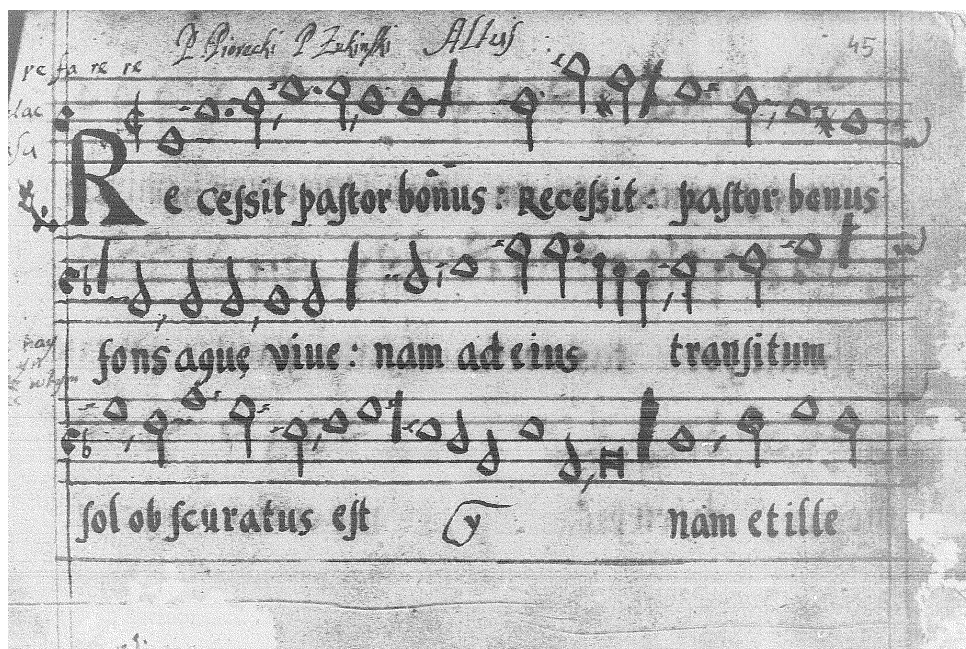 Altus 45
re fa re re
Recessit pastor bonus : Recessit : pastor bonus
fons aquę viue : nam ad eius transitum
sol obscuratus est nam et ille